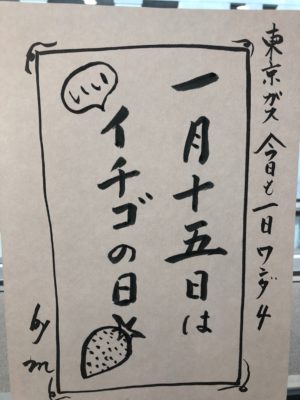 東京ガス 今日も一日ワンダ4
一月十五日は
いい
イチゴの日
by m